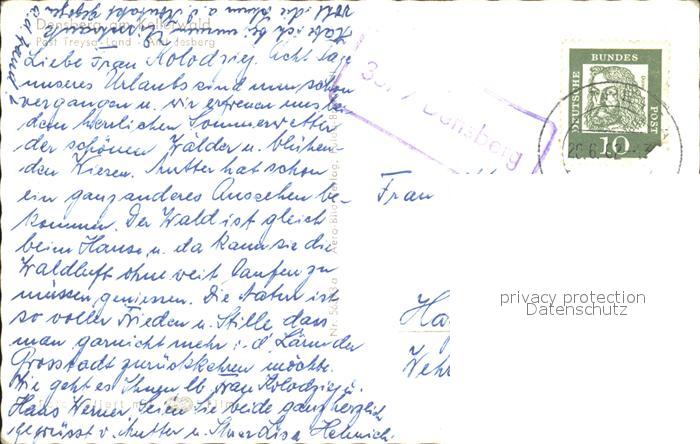 Densberg am Kellerwald
Post Treysa-Land
Liebe Frau Kolodzieg. Acht Tage
unseres Urlaubs sind nun schon
vergangen u. wir erfreuen uns bei
dem herrlichen Sommerwetter
der schönen Wälder u. blühen-
den Wiesen. Mutter hat schon
ein ganz anderes Aussehen be-
kommen. Der Wald ist gleich
beim Hause u. da kann sie die
Waldluft ohne weit laufen zu
müssen geniessen. Die Natur ist
so voller Frieden u. Stille dass
man garnicht mehr i. d. Lärm der
Grosstadt zurückkehren möchte.
Wie geht es Ihnen lb. Frau Kolodzieg u.
Hans Werner. Seien Sie beide ganz herzlich
gegrüsst v. Mutter u. Lisa Heinrich.
Densberg
DEUTSCHE BUNDES POST
10
Frau
Ha
Wehr
privacy protection
Datenschutz